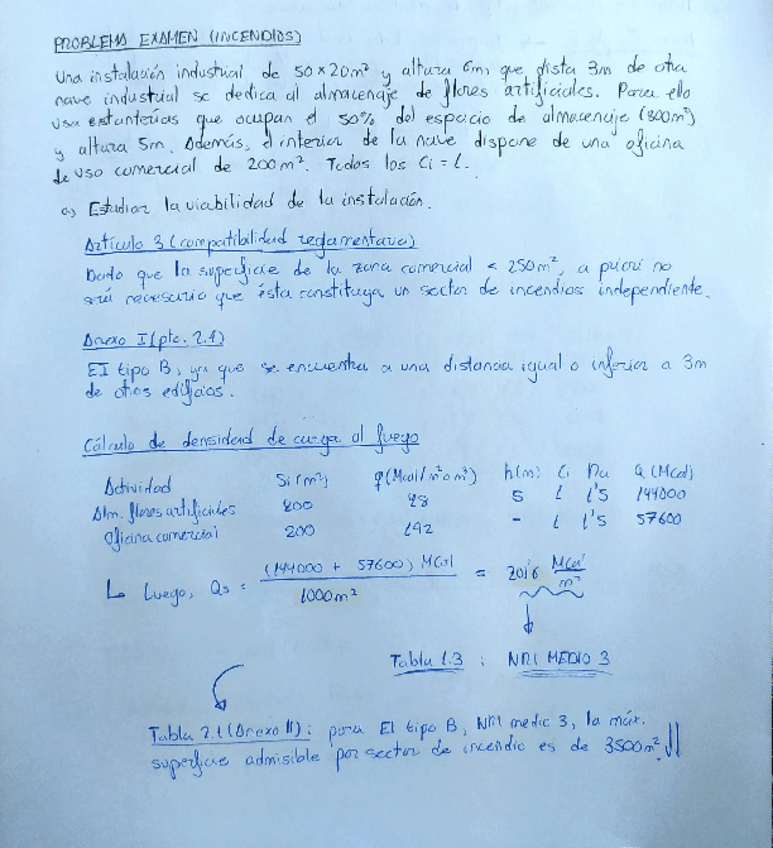 PROBLEMA EXAMEN (INCENDIOS)
Una instalación industrial de 50x20m² y altura 6m, que dista 3m de otra
nave industrial se dedica al almacenaje de flores artificiales. Para ello
usa estanterías que ocupan el 50% del espacio de almacenaje (800m²)
y altura 5m. Además, el interior de la nave dispone de una oficina
de uso comercial de 200m². Todos los Ci = 1.
a) Estudiar la viabilidad de la instalación.
Artículo 3 (compatibilidad reglamentaria)
Dado que la superficie de la zona comercial < 250m², a priori no
será necesario que ésta constituya un sector de incendios independiente.
Anexo I (pto. 2.1)
EI tipo B, ya que se encuentra a una distancia igual o inferior a 3m
de otros edificios.
Cálculo de densidad de carga al fuego
Actividad Si (m²) q (Mcal/m² o m³) h(m) Ci Ra Q (Mcal)
Alm. flores artificiales 800 28 5 1 1'5 144000
Oficina comercial 200 192 - 1 1'5 57600
Luego, Qs = (144000 + 57600) Mcal / 1000m² = 201'6 Mcal/m²
Tabla 1.3 : NRI MEDIO 3
Tabla 2.1 (Anexo II) : para EI tipo B, NRI medio 3, la máx.
superficie admisible por sector de incendio es de 3500m².